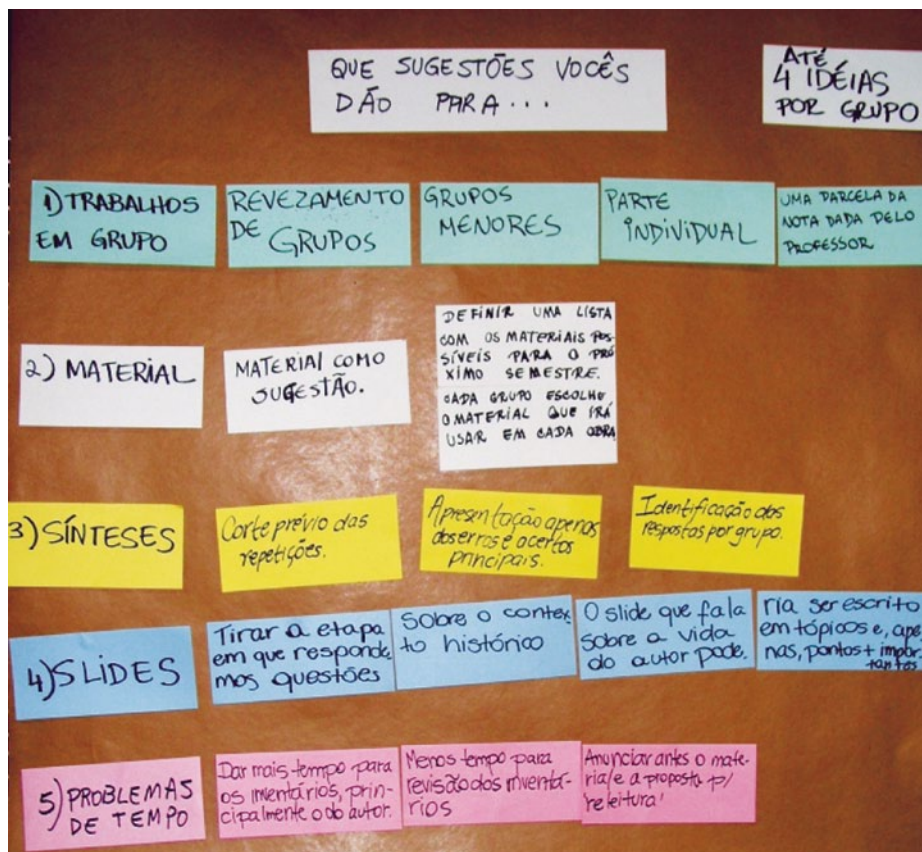 QUE SUGESTÕES VOCÊS
DÃO PARA...
ATÉ
4 IDÉIAS
POR GRUPO
1) TRABALHOS
EM GRUPO
REVEZAMENTO
DE GRUPOS
GRUPOS
MENORES
PARTE
INDIVIDUAL
UMA PARCELA DA
NOTA DADA PELO
PROFESSOR
2) MATERIAL
MATERIAL COMO
SUGESTÃO.
DEFINIR UMA LISTA
COM OS MATERIAIS POS-
SÍVEIS PARA O PRÓ
XIMO SEMESTRE.
CADA GRUPO ESCOLHE
O MATERIAL QUE IRÁ
USAR EM CADA OBRA
3) SÍNTESES
Corte prévio das
repetições.
Apresentação apenas
dos erros e acertos
principais.
Identificação das
respostas por grupo.
4) SLIDES
Tirar a etapa
em que responde
mos questões
Sobre o contex
to histórico
O slide que fala
sobre a vida
do autor pode.
ria ser escrito
em tópicos e, ape
nas, pontos + impor
tantes
5) PROBLEMAS
DE TEMPO
Dar mais tempo para
os inventários, prin-
cipalmente o do autor.
Menos tempo para
revisão dos inventá-
rios
Anunciar antes o mate-
rial e a proposta p/
'releitura'